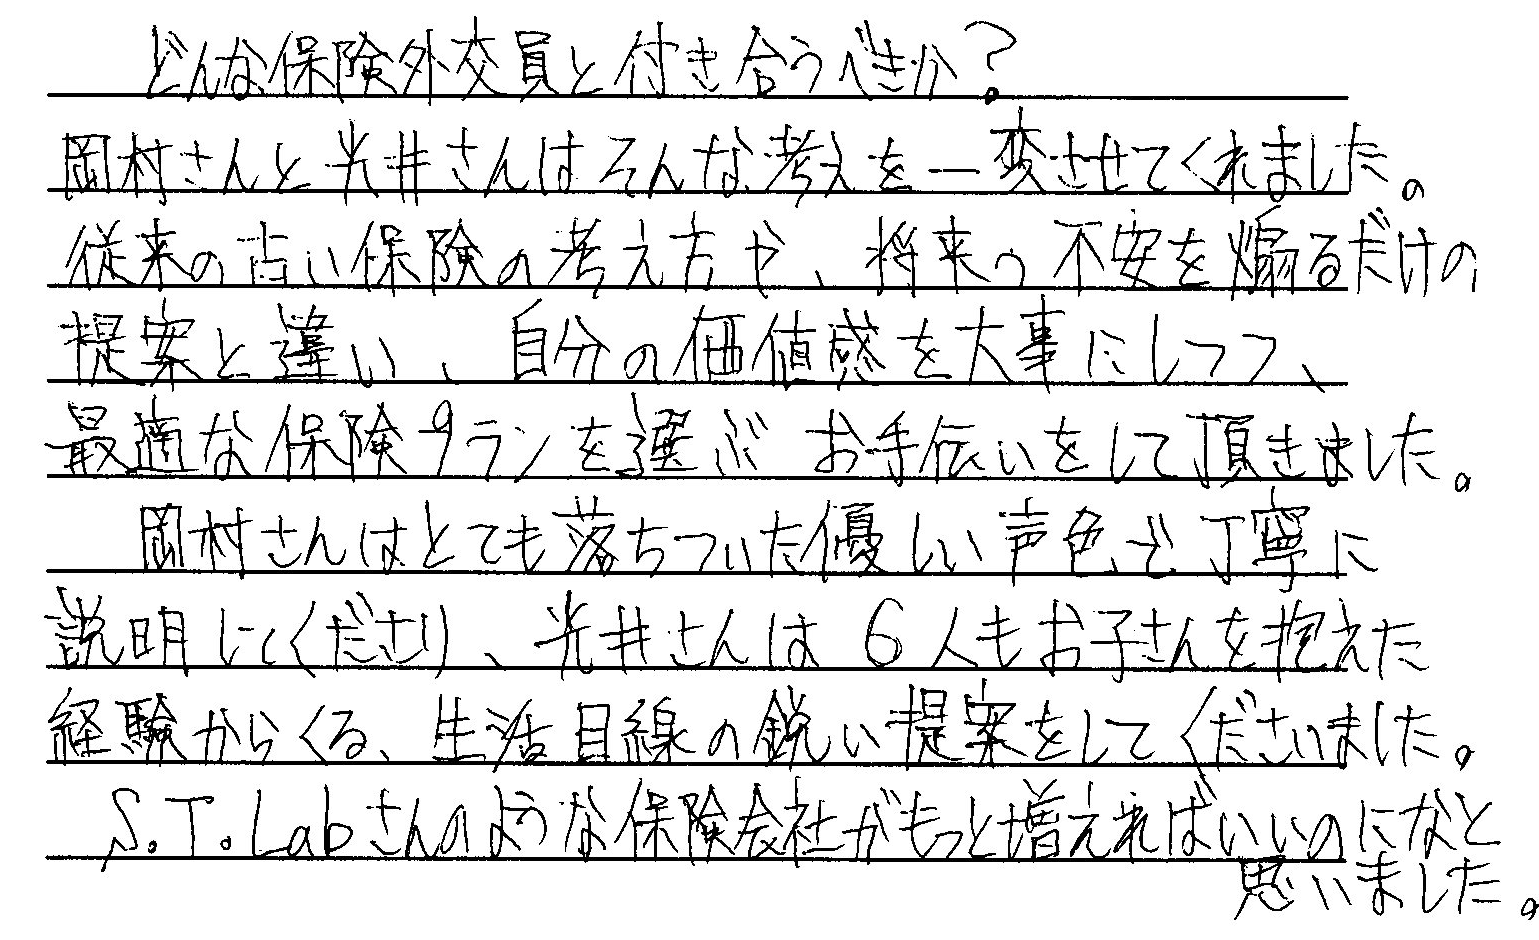 どんな保険外交員と付き合うべきか?
岡村さんと光井さんはそんな考えを一変させてくれました。
従来の古い保険の考え方や、将来の不安を煽るだけの
提案と違い、自分の価値感を大事にしつつ、
最適な保険プランを選ぶお手伝いをして頂きました。
岡村さんはとても落ちついた優しい声色で丁寧に
説明してくださり、光井さんは6人もお子さんを抱えた
経験からくる、生活目線の鋭い提案をしてくださいました。
S.T.Labさんのような保険会社がもっと増えればいいのになと
思いました。